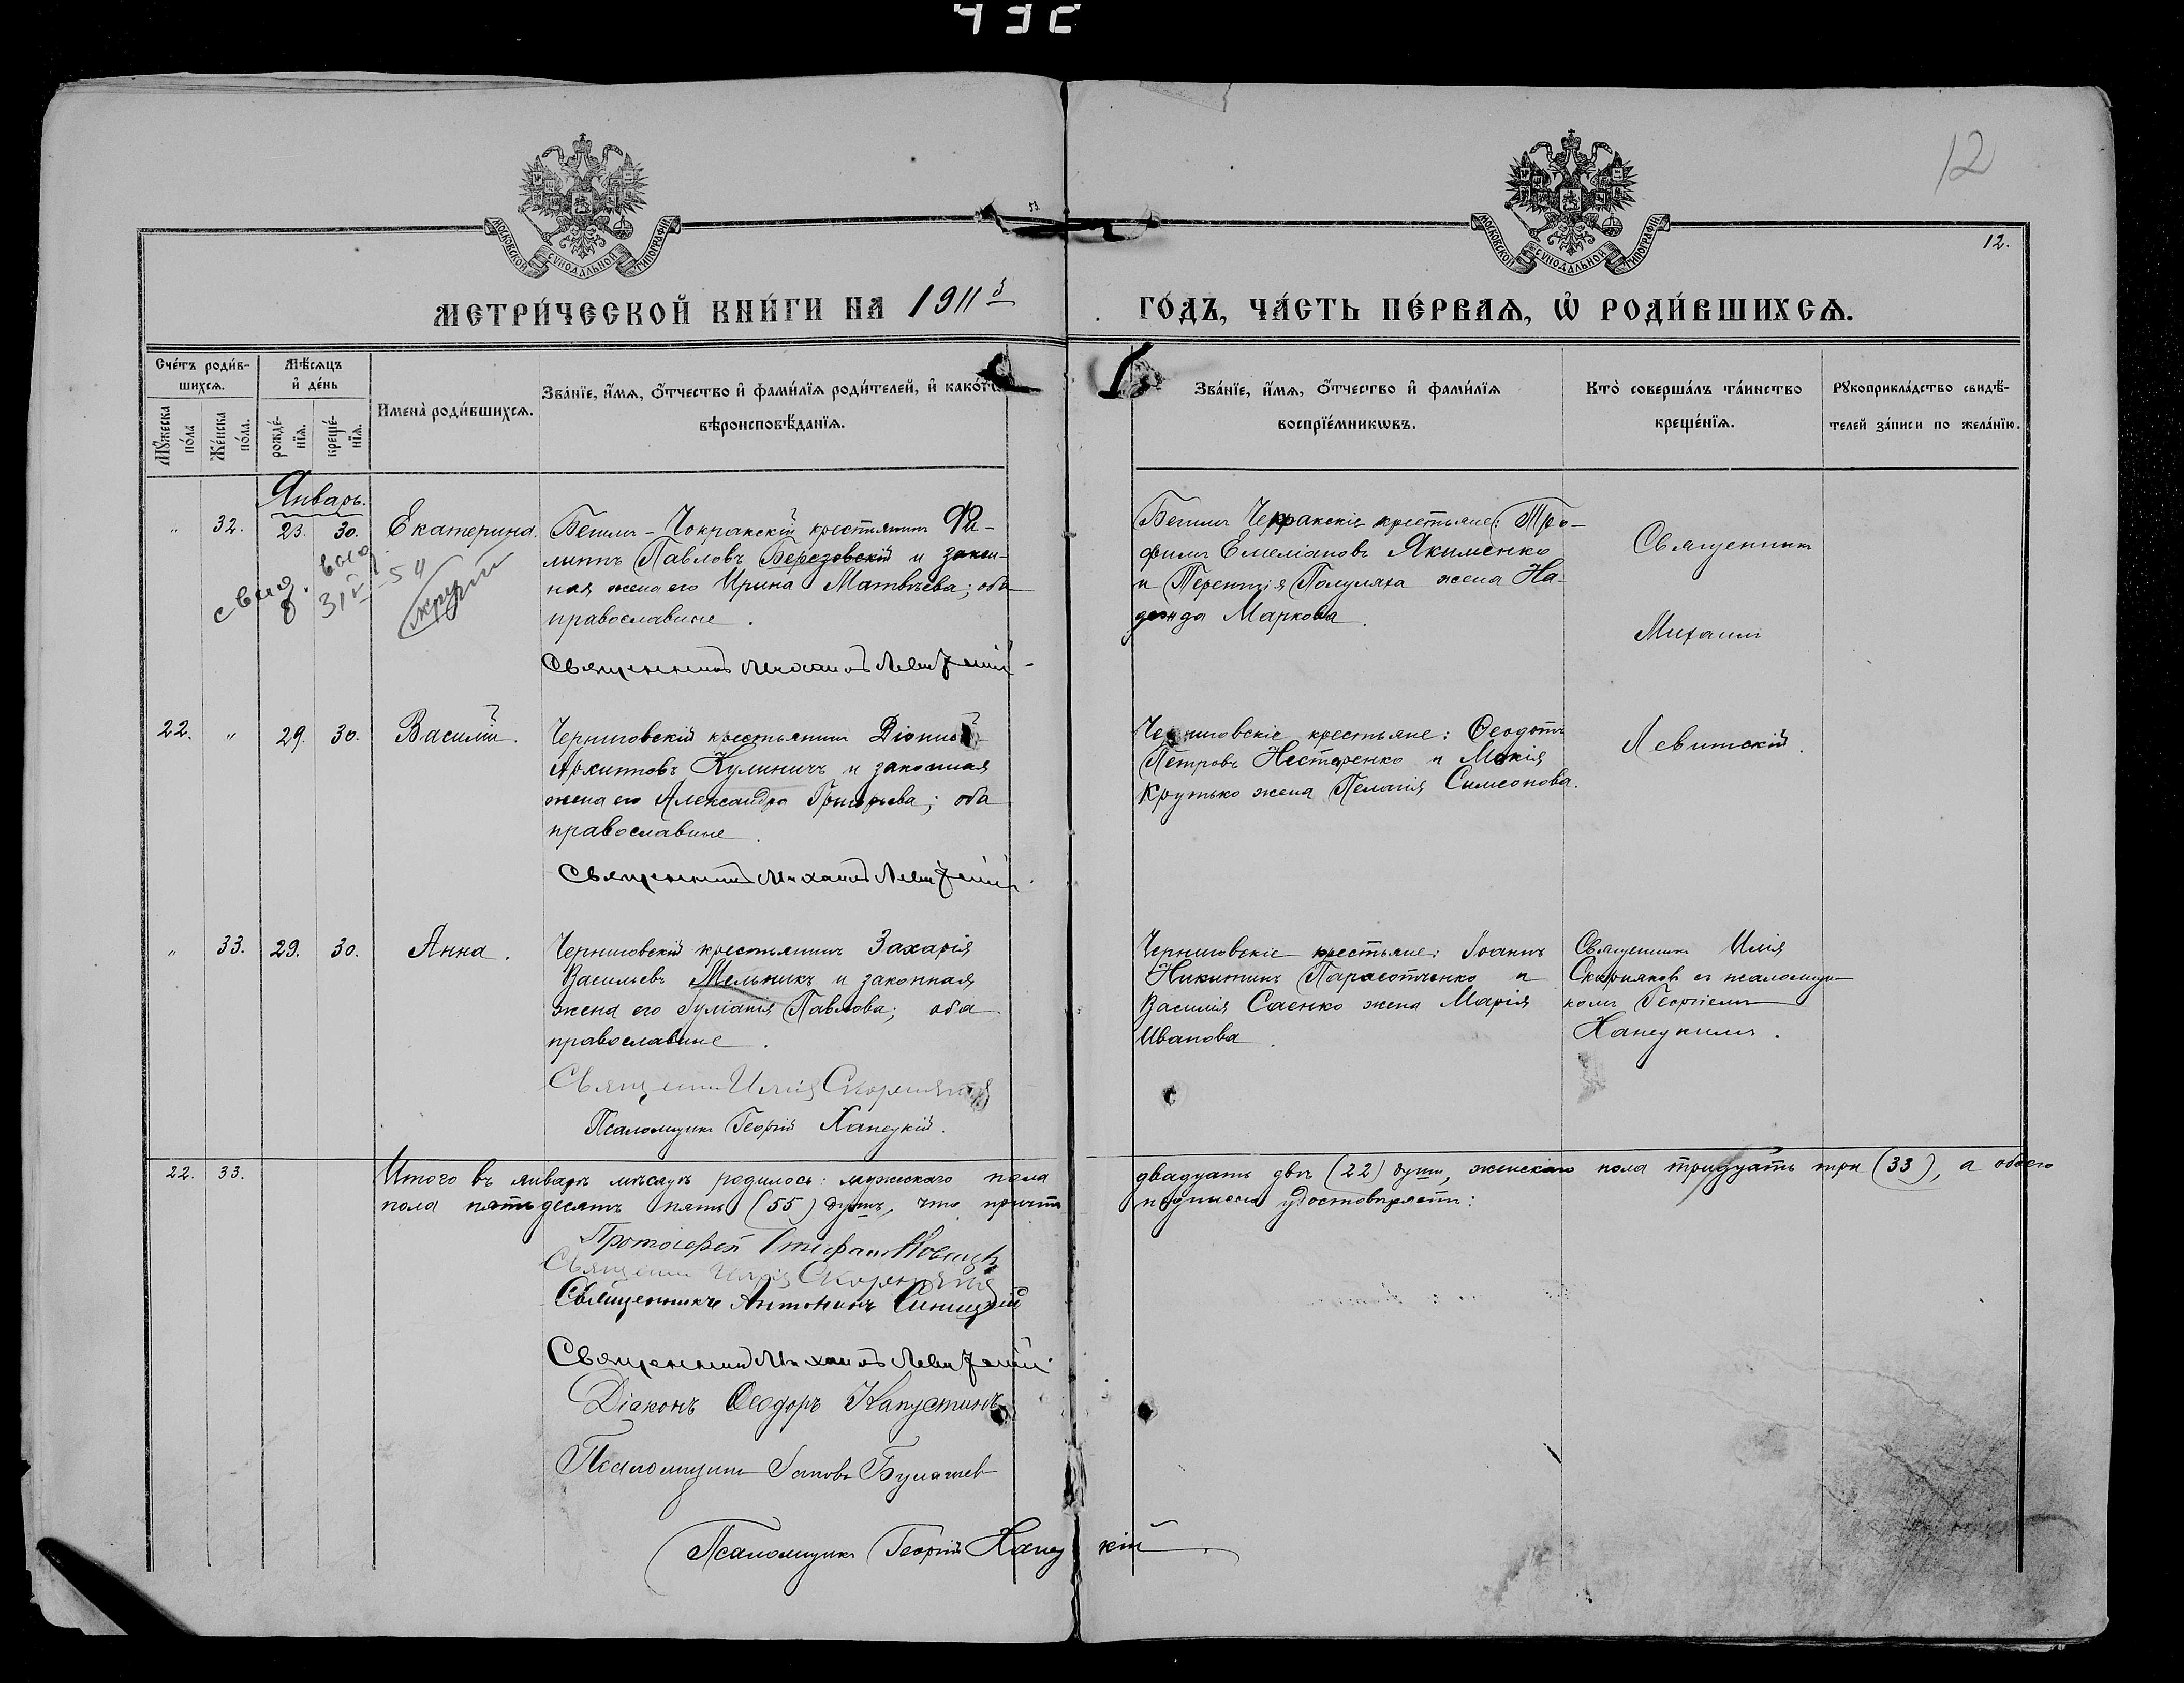 43С
12
12.
МОСКОВСКОЙ СѴНОДАЛЬНОЙ ТИПОГРАФІИ
МОСКОВСКОЙ СѴНОДАЛЬНОЙ ТИПОГРАФІИ
МЕТРИ́ЧЕСКОЙ КНИ́ГИ НА 1911й
ГО́ДЪ, ЧА́СТЬ ПЕ́РВАѦ, Ѡ҆ РОДИ́ВШИХСѦ.
Сче́тъ роди́в-
шихсѧ.
Мꙋ́жеска по́ла
Же́нска по́ла.
Мѣ́сѧцъ
и҆ де́нь
рожде́-
нїѧ.
креще́-
нїѧ.
Имена̀ роди́вшихсѧ.
Зва́нїе, и҆́мѧ, ѻ҆́тчество и҆ фами́лїѧ роди́телей, и҆ како́гѡ
вѣроисповѣ́данїѧ.
Зва́нїе, и҆́мѧ, ѻ҆́тчество и҆ фами́лїѧ
воспрїе́мникѡвъ.
Кто̀ соверша́лъ та́инство
креще́нїѧ.
Рꙋкоприкла́дство свидѣ́-
телей за́писи по жела́нїю.
Январь.
" 32. 23. 30. Екатерина.
Бешлы-Чокракскій крестьянинъ Фи-
липпъ Павловъ Березовскій и закон-
ная жена его Ирина Матвѣева; оба
православные.
Священникъ Михаилъ Левитскій
Трофимъ Емеліановъ Якименко
и Терентія Полуляха жена На-
дежда Маркова.
Священникъ
Михаилъ
Левитскій.
22. " 29. 30. Василій.
Черниговскій крестьянинъ Діонисій
Архипповъ Кулиничъ и законная
жена его Александра Григорьева; оба
православные.
Священникъ Михаилъ Левитскій.
Черниговскіе крестьяне: Ѳеодотъ
Петровъ Нестеренко и Мокія
Крутько жена Пелагія Симеонова.
" 33. 29. 30. Анна.
Черниговскій крестьянинъ Захарія
Васильевъ Мельникъ и законная
жена его Іуліанія Павлова; оба
православные.
Священникъ Илія
Псаломщикъ Георгій Ханецкій.
Черниговскіе крестьяне: Іоаннъ
Никитинъ и
Василія Саенко жена Марія
Иванова.
Священникъ Илія
съ псаломщи-
комъ Георгіемъ
Ханецкимъ.
22. 33. Итого въ январѣ мѣсяцѣ родилось: мужескаго пола двадцать двѣ (22) души, женскаго пола тридцать три (33), а обоего
пола пятьдесятъ пять (55) душъ, что причтъ подписомъ удостовѣряетъ:
Протоіерей Стефанъ
Священникъ Илія
Священникъ Антонинъ Синицкій
Священникъ Михаилъ Левитскій.
Діаконъ Ѳеодоръ Капустинъ
Псаломщикъ
Псаломщикъ Георгій Ханецкій.